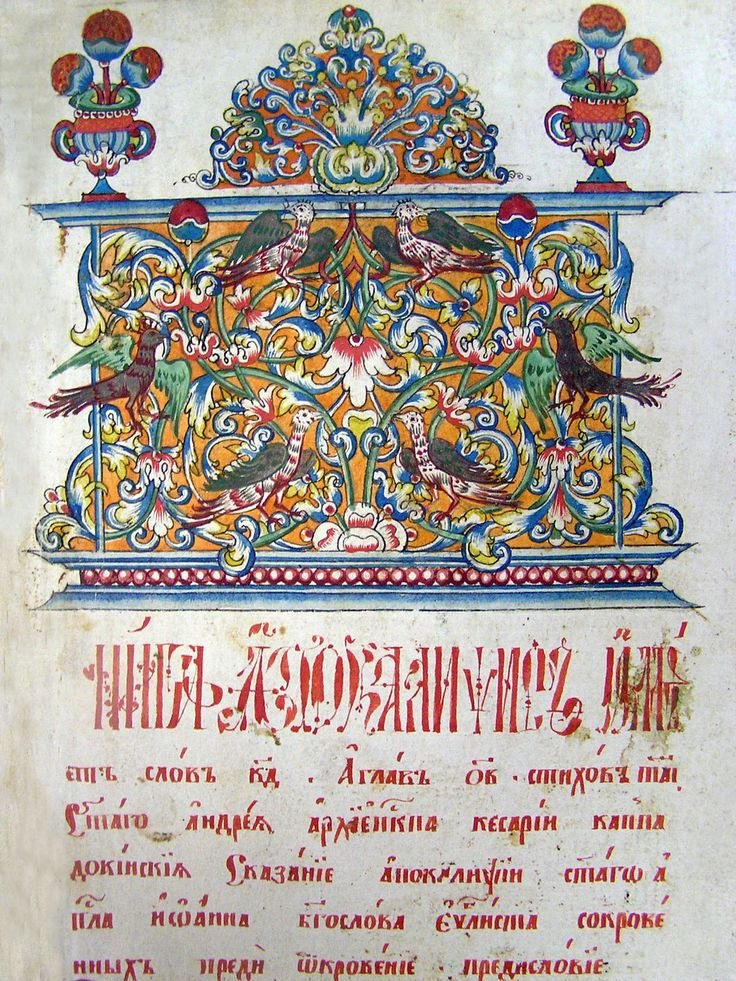 Кни́га А҆покали́ѱисъ И҆мѣ́
етъ словъ к҃д . А҆ главъ о҃в . стиховъ
Ст҃а́го а҆ндре́ѧ а҆рхїеп҃кпа кесарі́и каппа
докі́нскїѧ Сказа́нїе а҆покали́ѱїи ст҃а́гѡ а҆
п҃ла і҆ѡа́нна бг҃осло́ва є҆ѵ҃листа сокрове́
нныхъ предѝ ѿкрове́нїе . предисло́вїе